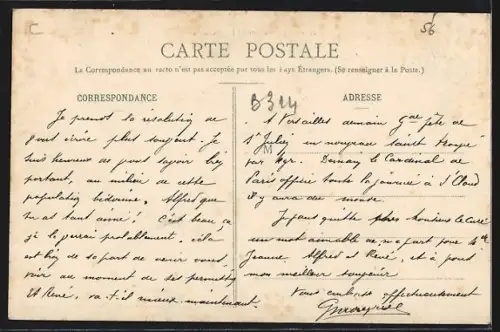 C
56
CARTE POSTALE
La Correspondance au recto n'est pas acceptée par tous les Pays Étrangers. (Se renseigner à la Poste.)
CORRESPONDANCE
B324
ADRESSE
Je prends la résolution de
vous écrire plus souvent. Je
suis heureux de vous savoir bien
portant, au milieu de cette
population bidonne. Alfred que
tu as tant aimé! C'est beau ça
je le verrai probablement. cela
est bien de sa part de venir vous
voir au moment de ses permissions
Et René, va-t-il mieux maintenant.
A Versailles demain Gde fête de
St Julien un nouveau saint
par Mgr. Demain le Cardinal de
Paris officie toute la journée à St Cloud
il y aura du monde.
Je vous quitte Monsieur le Curé
un mot aimable de ma part pour Mlle
Jeanne Alfred et René, et à vous
mon meilleur souvenir
Vous embrasse affectueusement